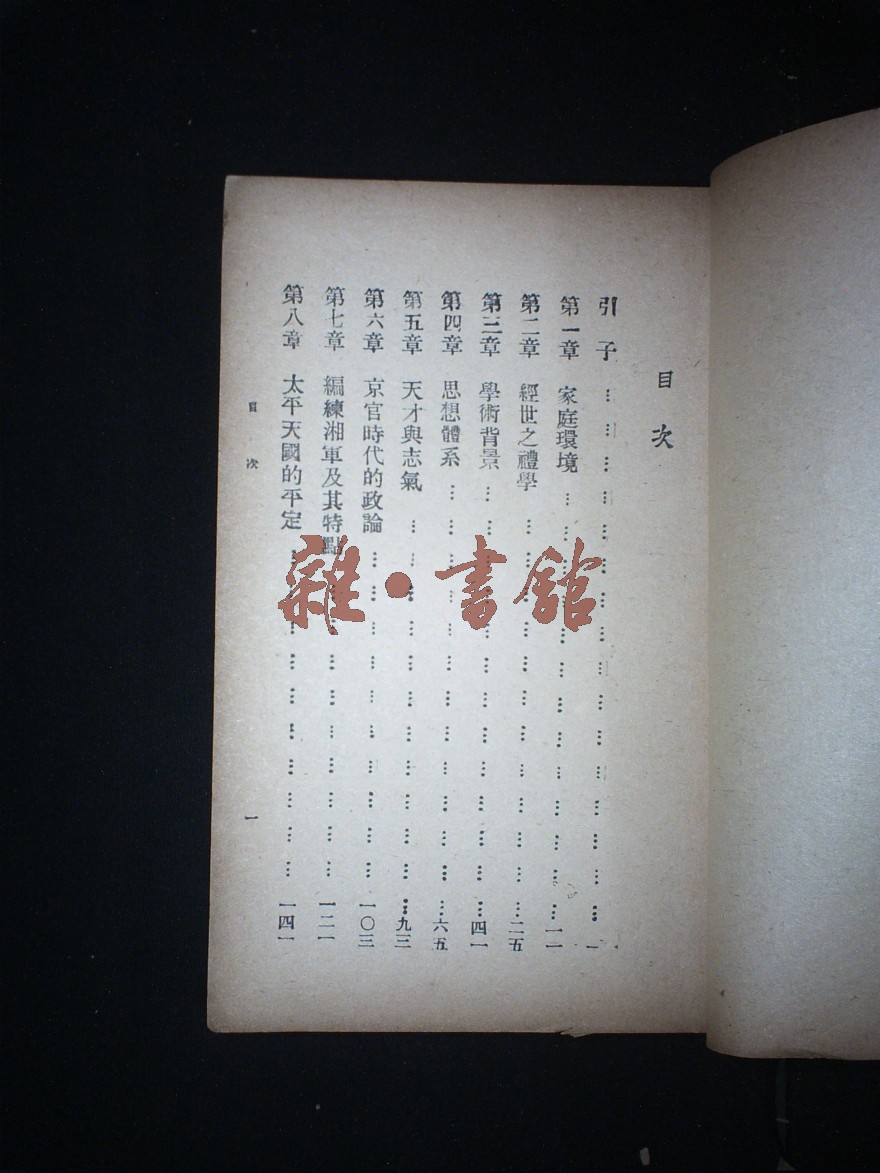 目次
引子……………………………………………一
第一章 家庭環境……………………………………一一
第二章 經世之禮學…………………………………二五
第三章 學術背景……………………………………四一
第四章 思想體系……………………………………六五
第五章 天才與志氣…………………………………九三
第六章 京官時代的政論……………………………一〇三
第七章 編練湘軍及其特點…………………………一二一
第八章 太平天國的平定……………………………一四一
目次
一
雜·書館